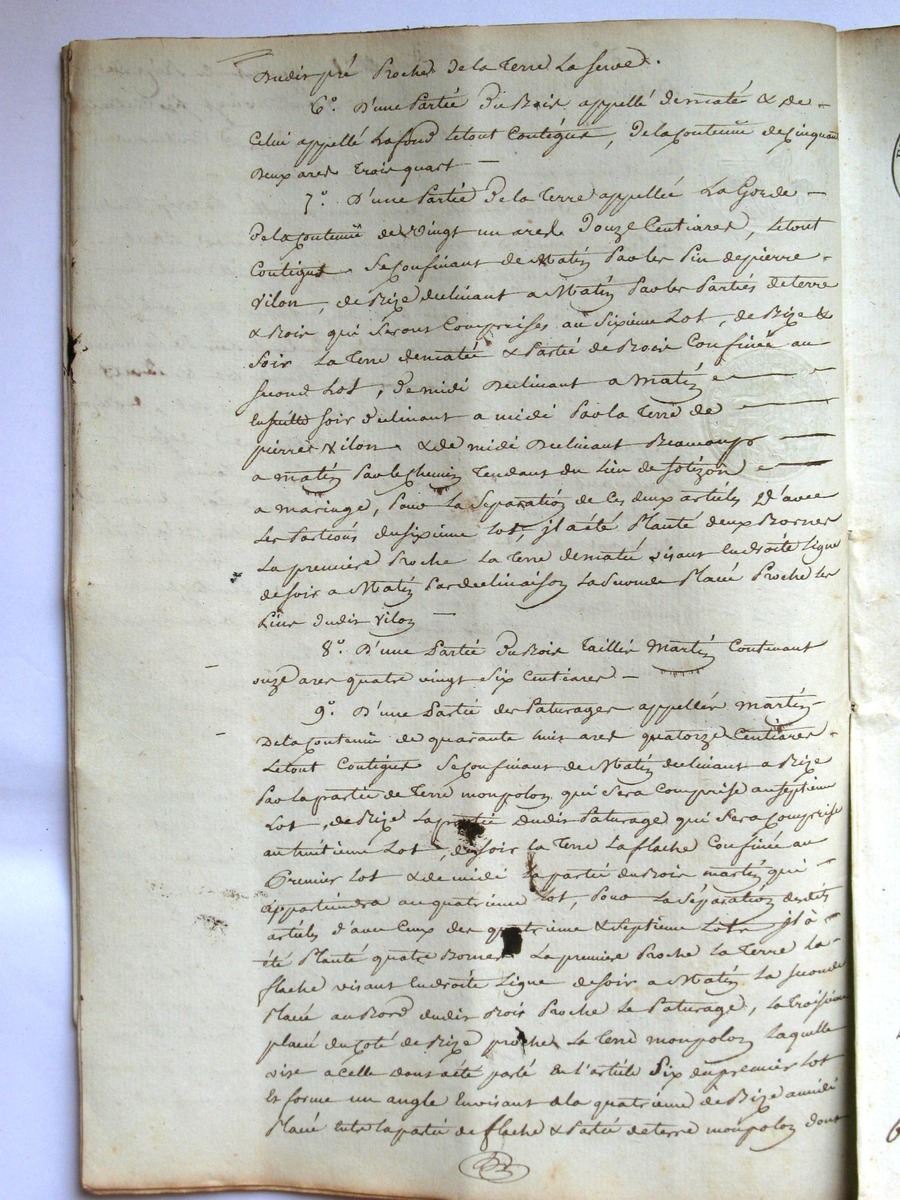 Dudit pré Proche de la Terre La serve.
6.º D'une Partie Du Bois appellé dematé & de
Celui appellé Lafond letout Contigue, delaContenue decinquante
deux ares trois quart —
7.º D'une Partie De la Terre appellée La Gorde
DelaContenue de vingt un ares Douze Centiares, letout
Contigue Seconfinant de Matin Par les Pin depierre
Vilon, de Bize declinant a Matin Par les Parties deterre
& Bois qui Seront Comprises au Sixième Lot, de Bize &
Soir La Terre dematé & Partie de Bois Confinée au
second Lot, de midi declinant a matin
Ensuitte soir declinant a midi Par la Terre de
pierre Vilon & de midi declinant Beaucoup
a matin Par le Chemin Tendant du Lieu de
a mariage, Pour La Separation de Ces deux articles D'avec
Les Portions du Sixieme Lot, il a été Planté deux Bornes
La premiere Proche La Terre dematé visant En droite Ligne
desoir a Matin Par declinaison La seconde Placée Proche les
Pins dudit Vilon —
8.º D'une Partie Du Bois Taillis Martin Contenant
onze ares quatre vingt Six Centiares —
9.º D'une Partie des Paturages appellés Martin
DelaContenue de quarante huit ares quatorze Centiares
Letout Contigue Seconfinant de Matin declinant a Bize
Par la partie de Terre monpolon qui Sera Comprise au Septieme
Lot, de Bize La partie Dudit Paturage qui Sera Comprise
au huitieme Lot, de soir la Terre La flache Confinée au
Premier Lot & de midi La partie du Bois martin qui
appartiendra au quatrieme Lot, Pour La Séparation desdits
articles d'avec Ceux des quatrieme & Septieme Lots il a
été Planté quatre Bornes La premiere Proche La Terre La
flache visant En droite Ligne desoir a Matin La seconde
Placée au Bord dudit Bois Proche Le Paturage, La Troisième
placée du Coté de Bize proche La Terre monpolon Laquelle
vise a celle dont a été parlé En L'article Six du premier Lot
Et forme un angle En visant a la quatrieme de Bize a midi
Placée Entre la partie de flache & Partie de terre monpolon dont